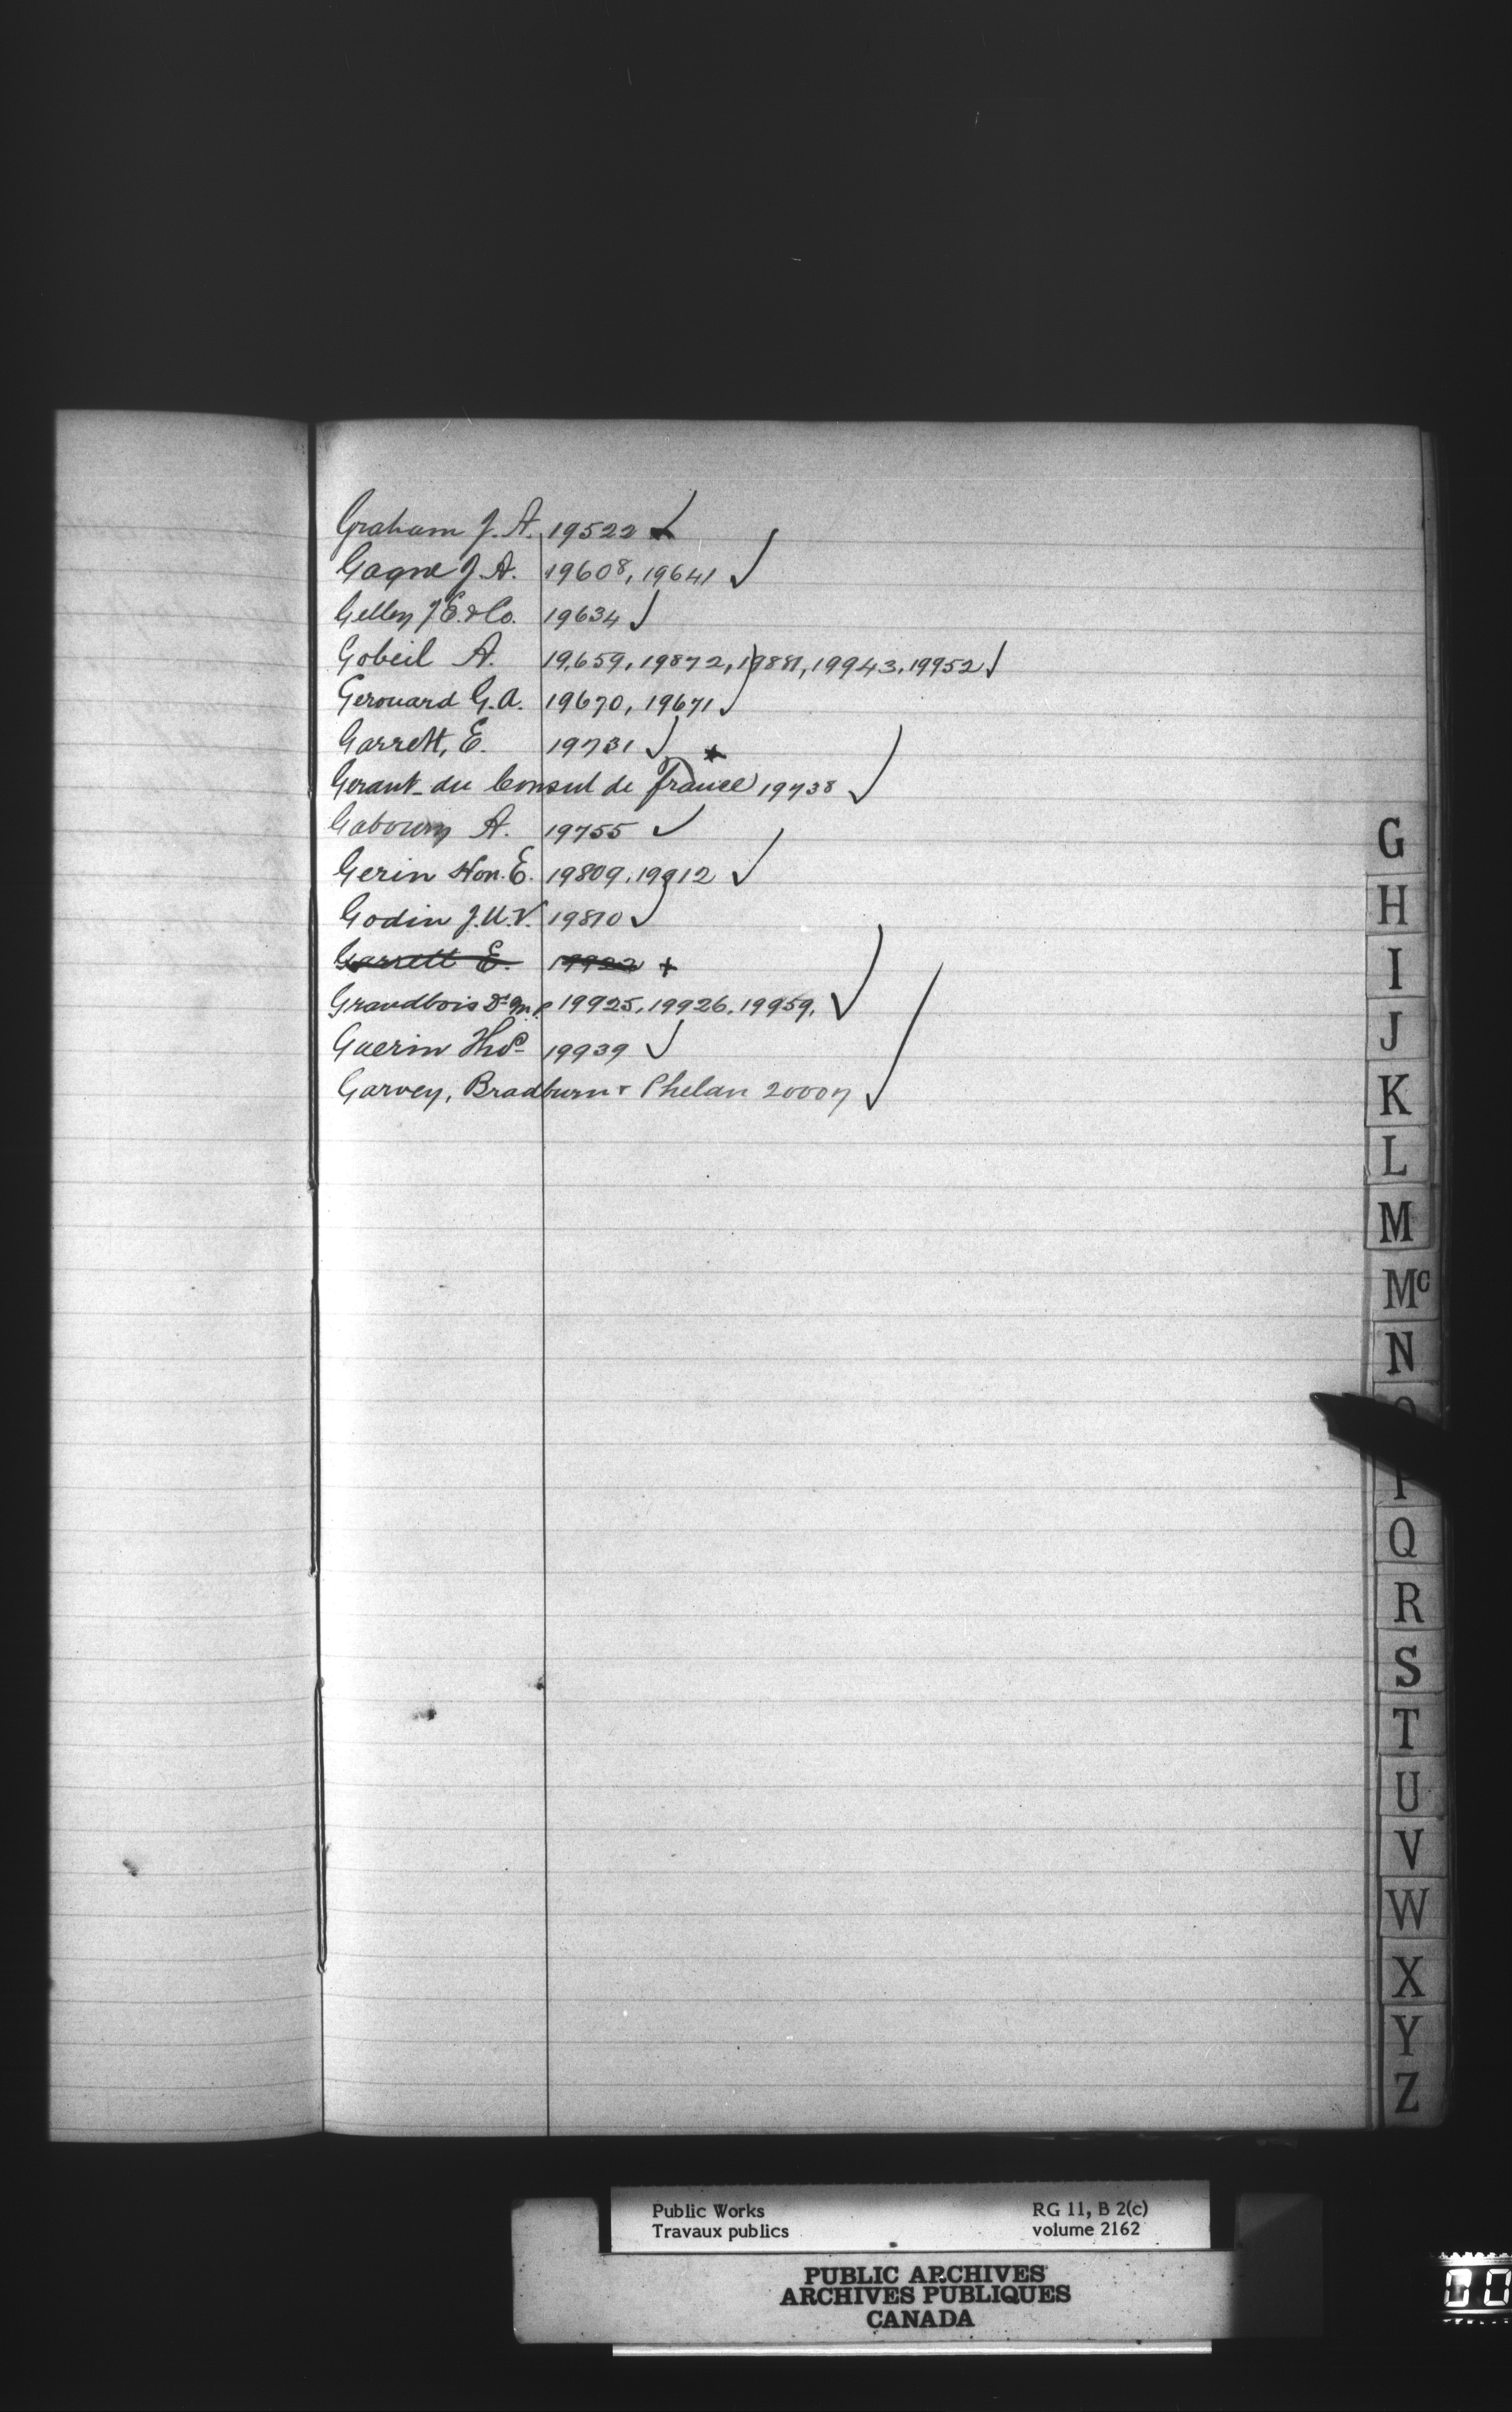 Graham J. A. 19522 ✓
Gagne J. A. 19608, 19641 ✓
Gelley J E. & Co. 19634 ✓
Gobeil A. 19,659, 19872, 19881, 19943, 19952 ✓
Gerouard G. A. 19670, 19671 ✓
Garrett, E. 19731 ✓
Gerant du Consul de France 19738 ✓
Gaboury A. 19755 ✓
Gerin Hon. E. 19809, 19912 ✓
Godin J. U. V. 19810 ✓
Garrett E. 19922 +
Grandbois Dr M.P. 19925, 19926, 19959, ✓
Guerin Thos 19939 ✓
Garvey, Bradburn & Phelan 20007 ✓
G
H
I
J
K
L
M
Mc
N
Q
R
S
T
U
V
W
X
Y
Z
Public Works RG 11, B 2(c)
Travaux publics volume 2162
PUBLIC ARCHIVES
ARCHIVES PUBLIQUES
CANADA
00